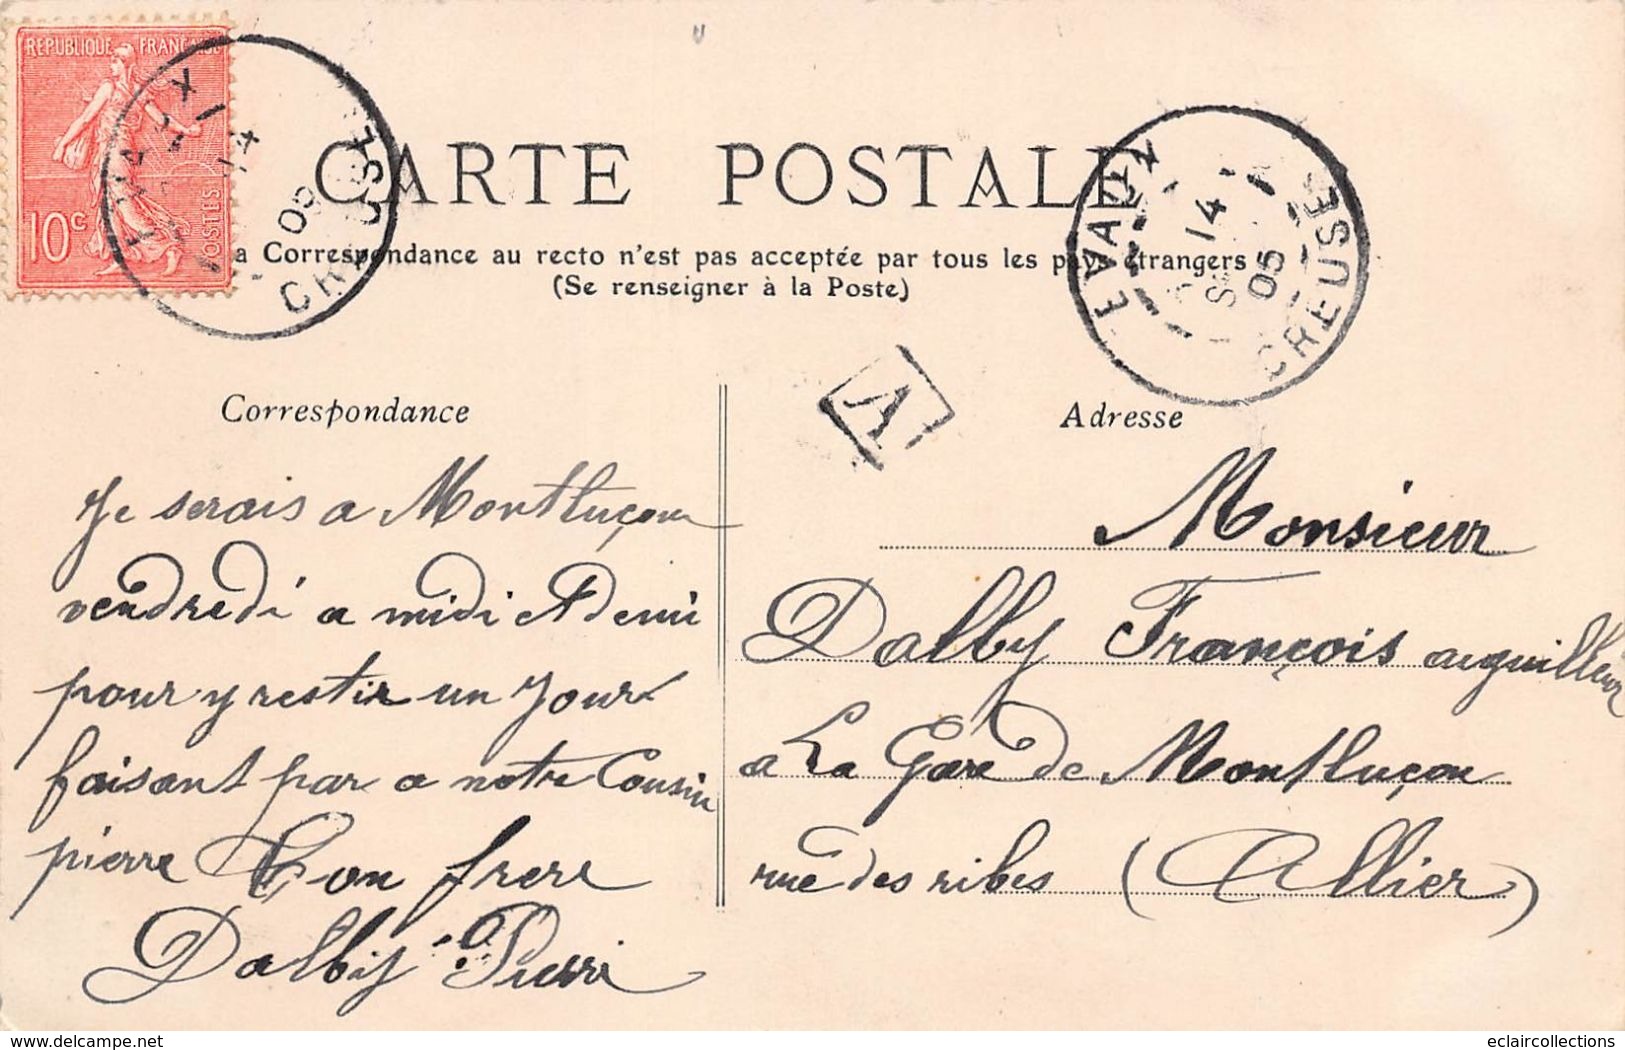 REPUBLIQUE FRANÇAISE
10c
POSTES
EVAUX
14
05
CREUSE
CARTE POSTALE
a Correspondance au recto n'est pas acceptée par tous les pays étrangers
(Se renseigner à la Poste)
EVAUX
14
05
CREUSE
A
Correspondance
Je serais a Montluçon
vendredi a midi et demi
pour y restir un jour
faisant par a notre Cousin
pierre Ton frere
Dalby Pierre
Adresse
Monsieur
Dalby François aiguilleur
a La Gare de Montluçon
rue des ribes (Allier)
editions-delcampe.net
eclaircollections